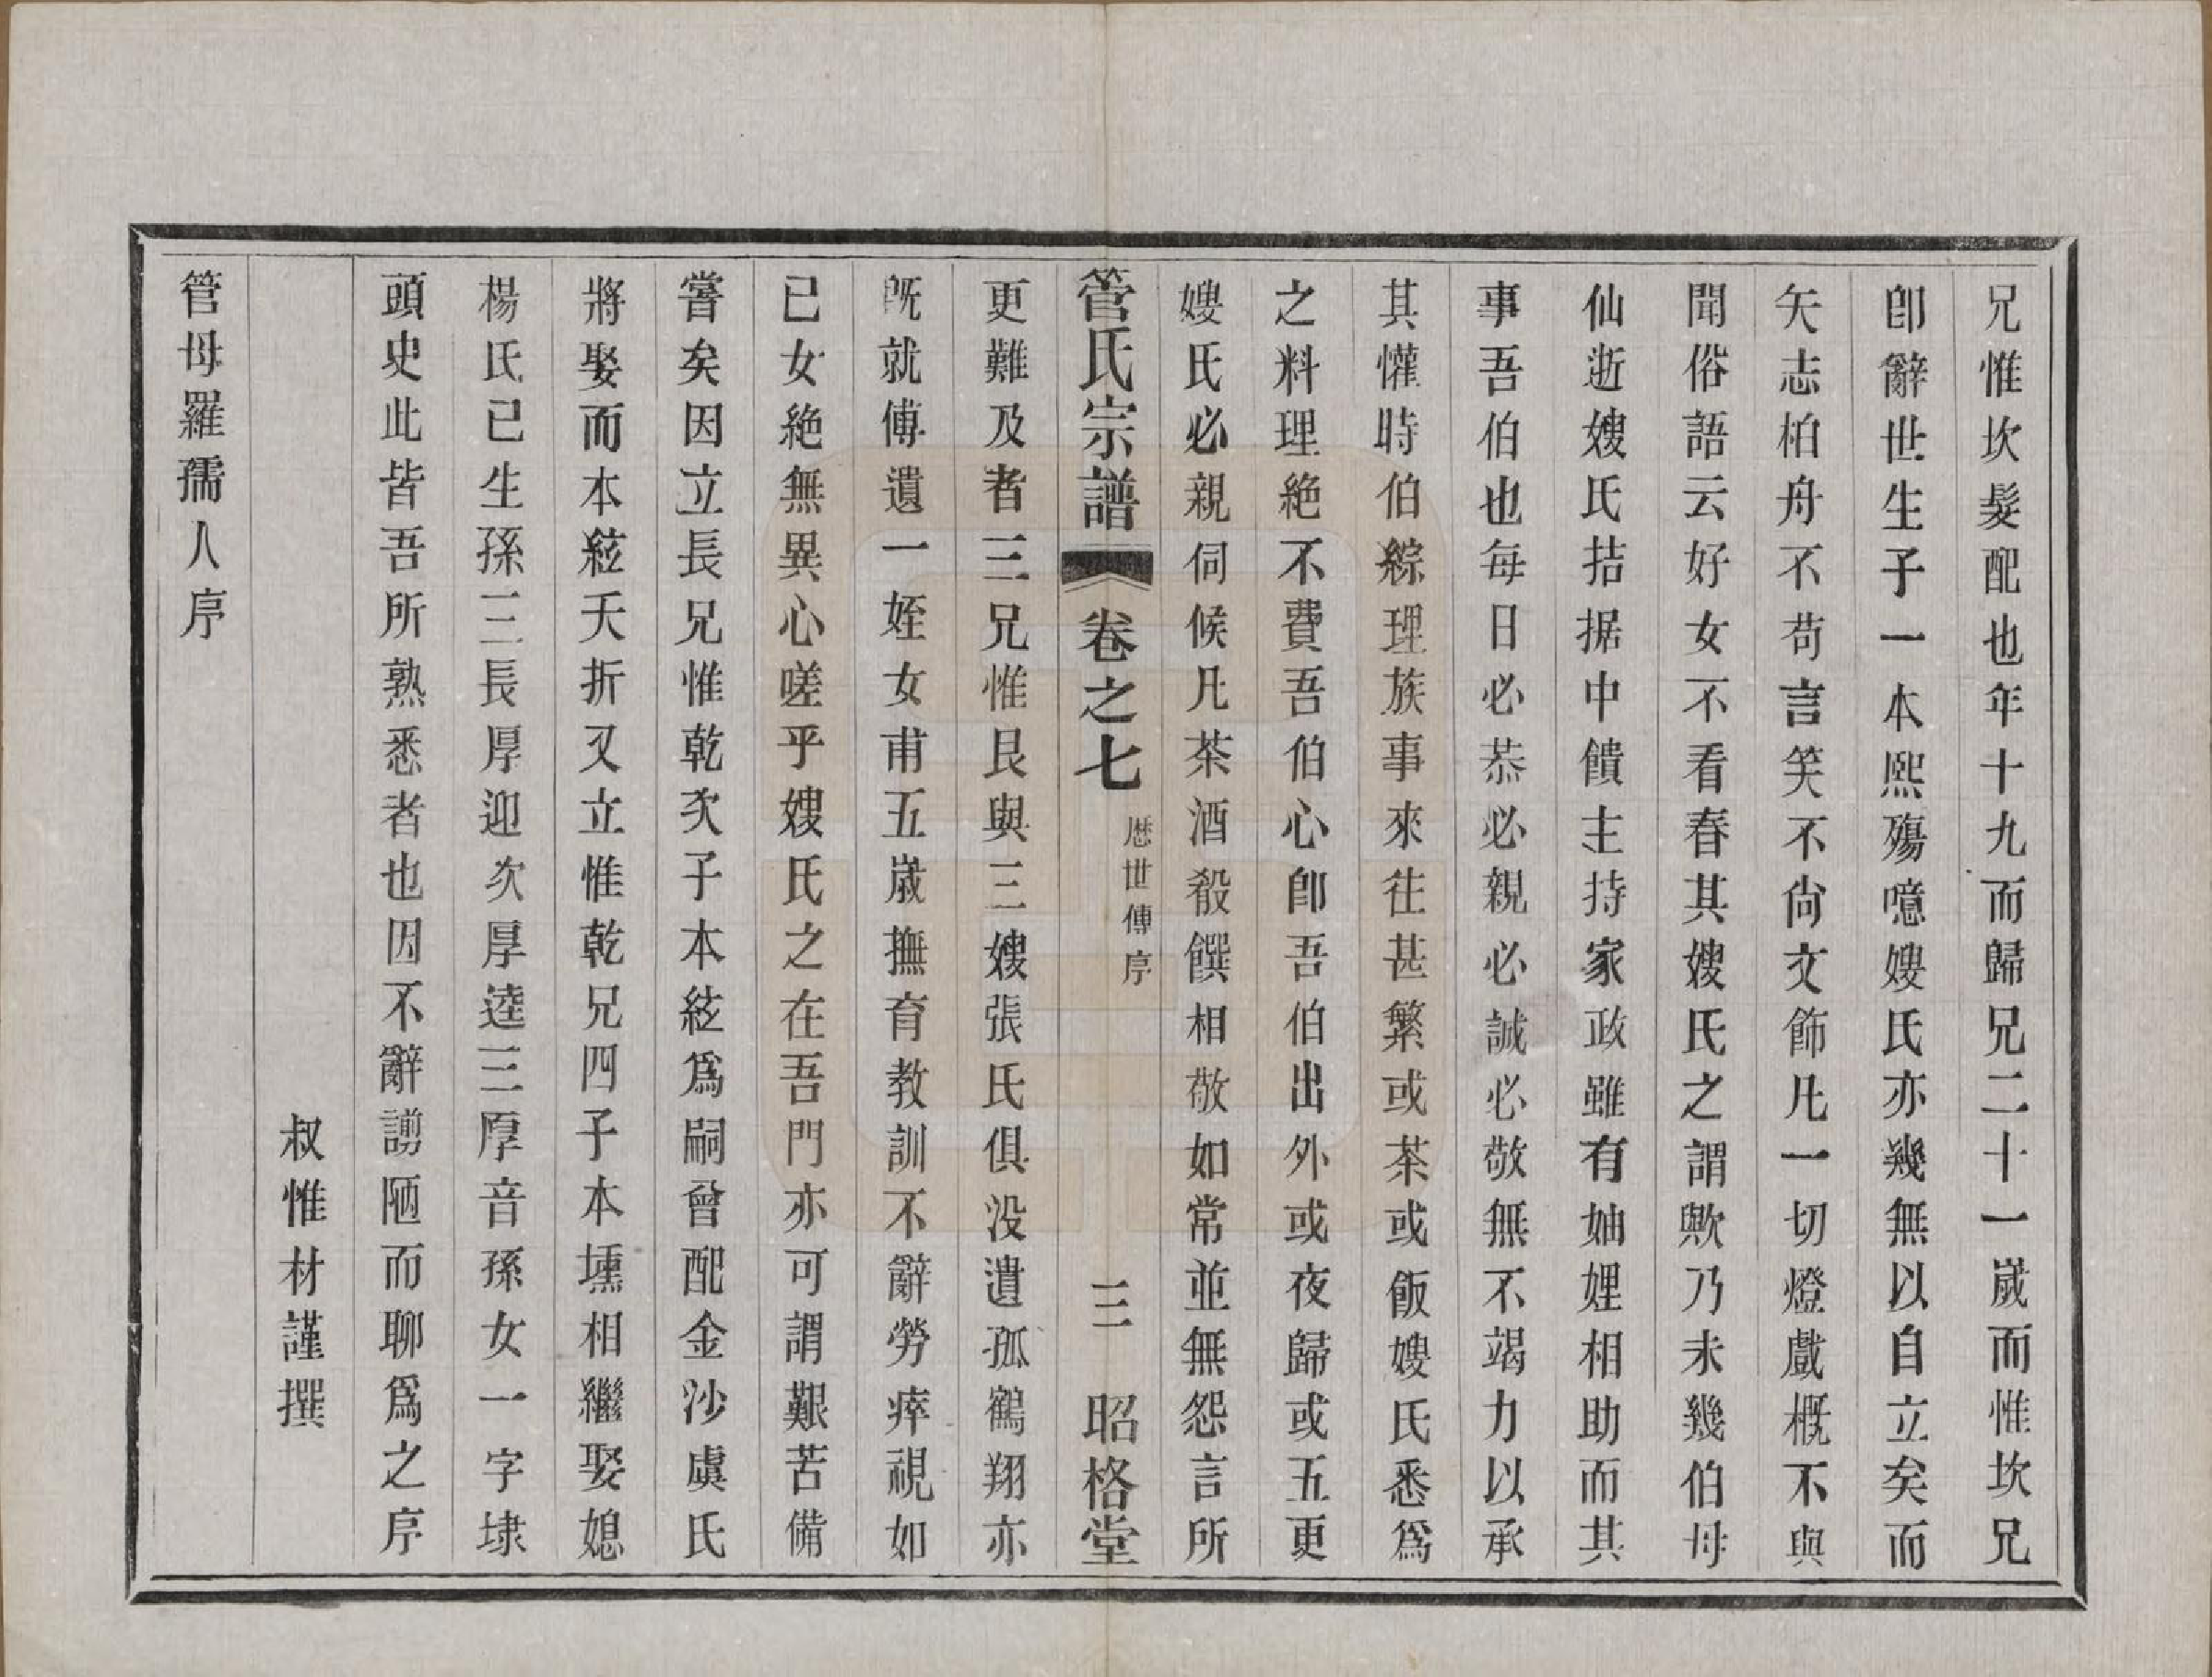 兄惟坎髮配也年十九而歸兄二十一歲而惟坎兄
卽辭世生子一本熙殤噫嫂氏亦幾無以自立矣而
矢志柏舟不苟言笑不尙文飾凡一切燈戲概不與
聞俗語云好女不看春其嫂氏之謂歟乃未幾伯母
仙逝嫂氏拮据中饋主持家政雖有妯娌相助而其
事吾伯也每日必恭必親必誠必敬無不竭力以承
其懽時伯綜理族事來往甚繁或茶或飯嫂氏悉爲
之料理絶不費吾伯心卽吾伯出外或夜歸或五更
嫂氏必親伺候凡茶酒殽饌相敬如常並無怨言所
管氏宗譜 卷之七 歷世傳序 三 昭格堂
更難及者三兄惟艮與三嫂張氏俱没遺孤鶴翔亦
旣就傅遺一姪女甫五歲撫育教訓不辭勞瘁視如
已女絶無異心嗟乎嫂氏之在吾門亦可謂艱苦備
嘗矣因立長兄惟乾次子本紘爲嗣曾配金沙虞氏
將娶而本紘夭折又立惟乾兄四子本壎相繼娶媳
楊氏已生孫三長厚迎次厚逵三厚音孫女一字埭
頭史此皆吾所熟悉者也因不辭謭陋而聊爲之序
叔惟材謹撰
管母羅孺人序